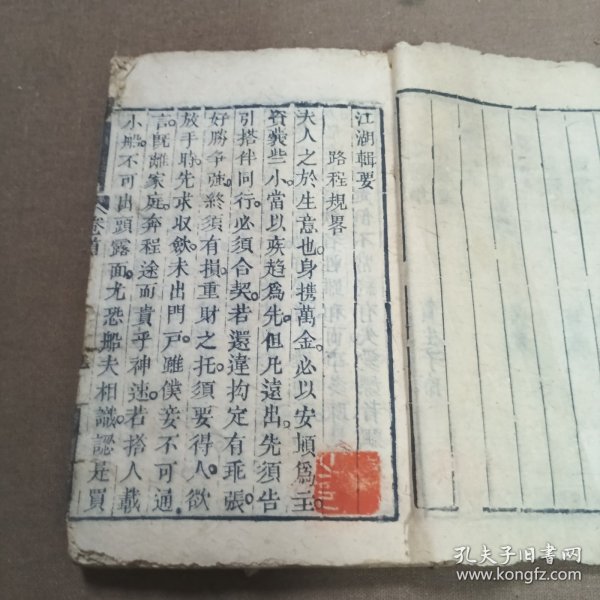 江湖輯要
路程規畧
夫人之於生意也身携萬金必以安頓為主
資囊些小當以疾趋為先但凡遠出先須告
引搭伴同行必須合契若還違拘定有乖張
好勝争強終須有損重財之托須要得人欲
放手時先求收斂未出門戸雖僕妾不可通
言既離家庭奔程途而貴乎神速若搭人載
小船不可出頭露面尤恐船夫相識認是買
卷首
孔夫子旧书网
www.kongfz.com